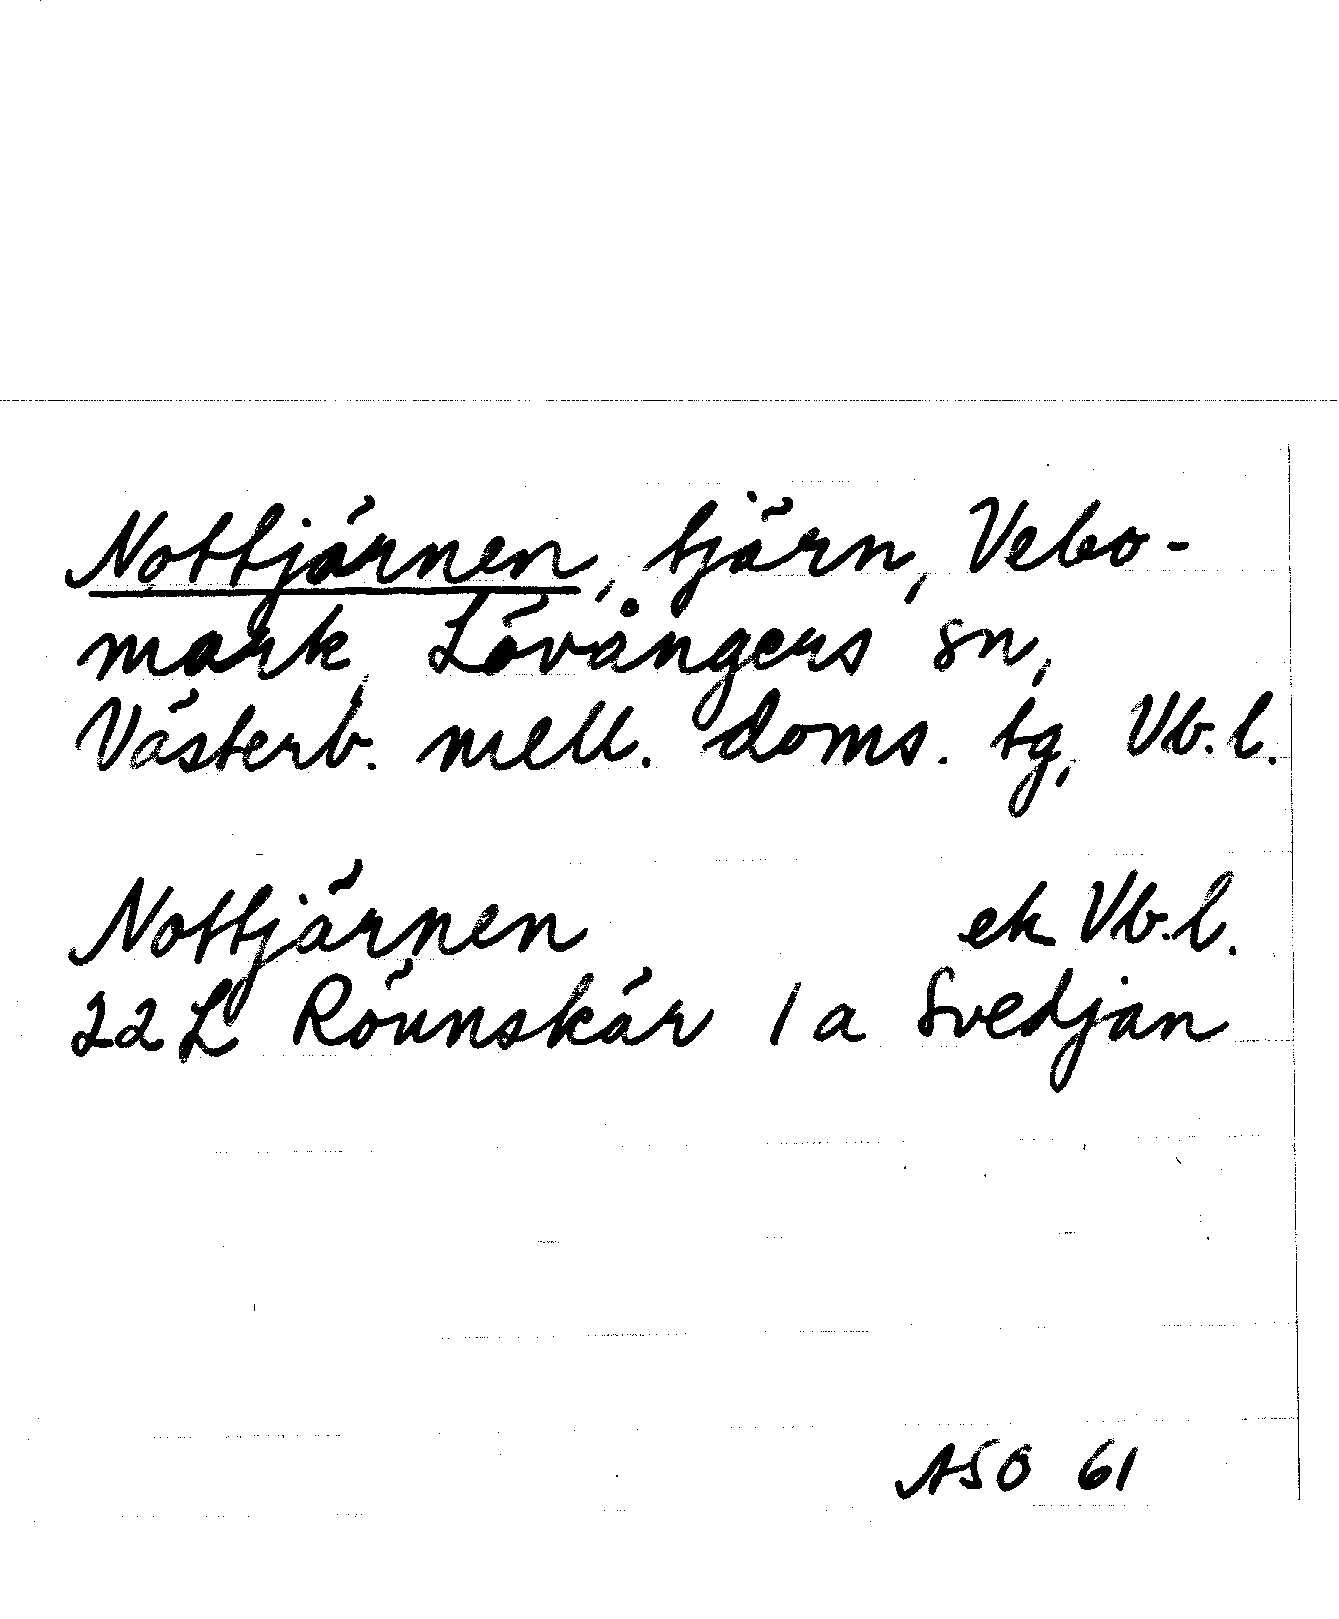 Nottjärnen, tjärn, Vebo-
mark, Lövångers sn,
Västerb. mell. doms. tg, Vb.l.
Nottjärnen ek Vb.l.
22L Rönnskär 1a Svedjan
ASO 61